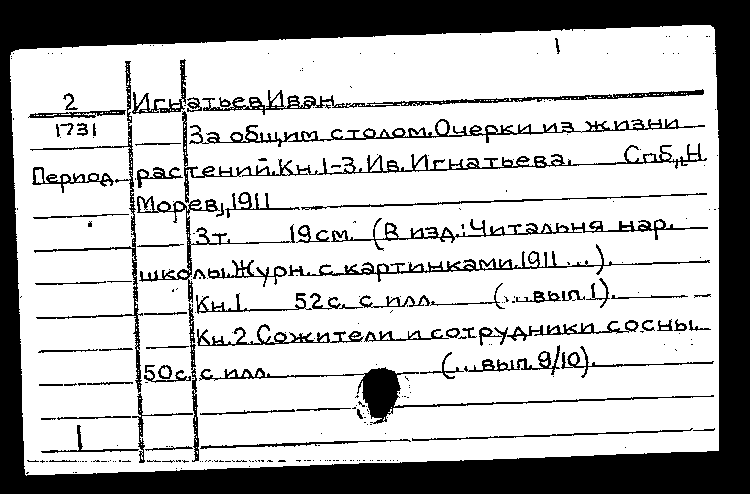 1
2 Игнатьев,Иван
1731 За общим столом.Очерки из жизни
Период. растений.Кн.1-3.Ив.Игнатьева. Спб,,Н.
Морев,,1911
3т. 19см. (В изд.:Читальня нар.
школы.Журн. с картинками.1911 ...).
Кн.1. 52с. с илл. (...вып.1).
Кн.2.Сожители и сотрудники сосны.
50с. с илл. (...вып.9/10).
1